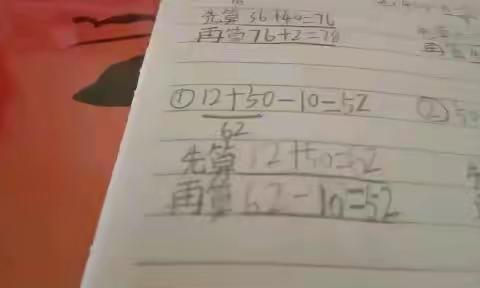 先算 36+40=76
再算 76+2=78
① 12+50-10=52
62
先算 12+50=62
再算 62-10=52
②